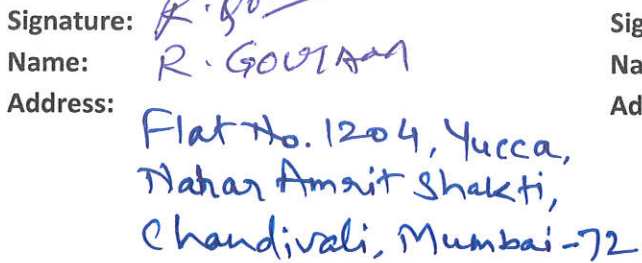 Signature: R. Go
Name: R. GOUTAM
Address:
Flat No. 1204, Yucca,
Nahar Amrit Shakti,
Chandivali, Mumbai-72
Sig
Na
Ad